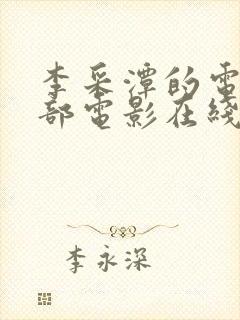 李采潭的電
部電影在綫
李永深